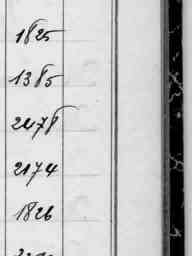 1825
1385
2478
2174
1826